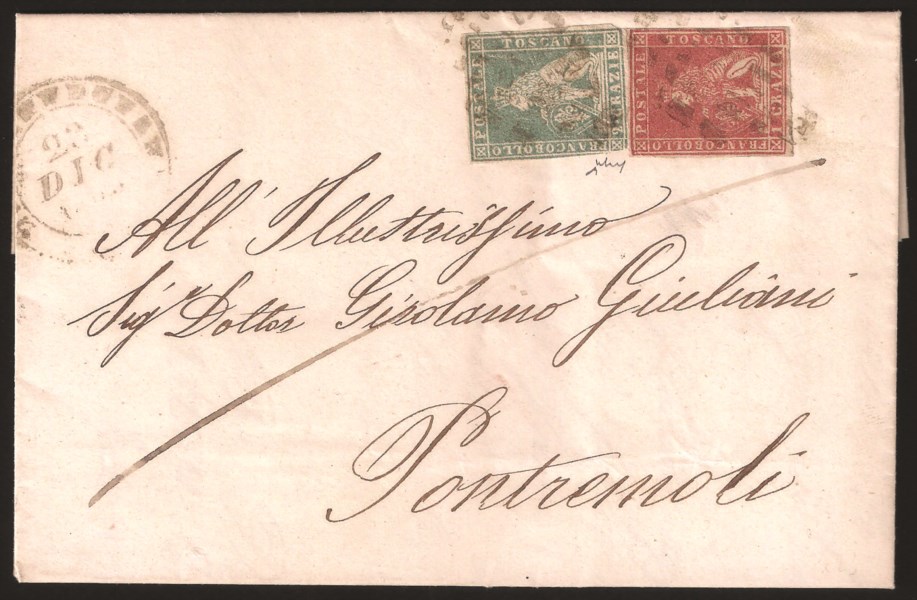 FRANCOBOLLO POSTALE TOSCANO 2 GRAZIE
FRANCOBOLLO POSTALE TOSCANO 1 GRAZIA
23
DIC
All' Illustrissimo
Sigr Dottor Girolamo Giuliani
Pontremoli